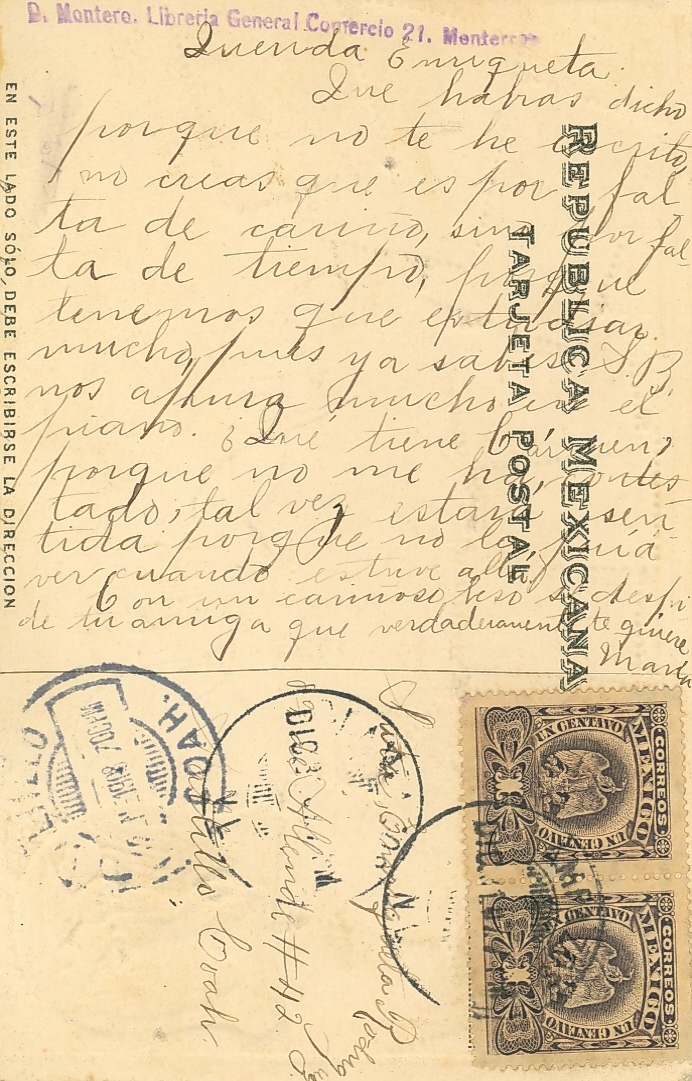 D. Montero. Libreria General Comercio 21. Monterrey
Querida Enriqueta.
Que habras dicho
porque no te he escrito,
no creas que es por fal
ta de cariño, sino por fal-
ta de tiempo, porque
tenemos que estudiar
mucho, pues ya sabes S. B.
nos apura mucho en el
piano. ¿Qué tiene Cármen,
porque no me ha contes
tado, tal vez estará sen
tida porque no la fuí á
ver cuando estuve allá?
Con un cariñoso beso se despi
de tu amiga que verdaderamente te quiere
María
EN ESTE LADO SÓLO, DEBE ESCRIBIRSE LA DIRECCION
REPUBLICA MEXICANA
TARJETA POSTAL
Srita. Enriqueta
de Allende #42
Saltillo Coah.
COAH.
CORREOS
MEXICO
UN CENTAVO
UN CENTAVO
CORREOS
MEXICO
UN CENTAVO
UN CENTAVO